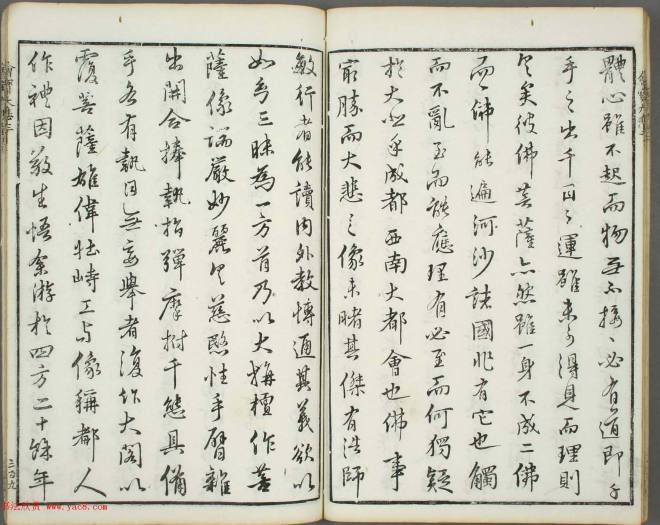 體心雖不起而物無不接〻必有道即千
手之出千目之運雖未可得見而理則
具矣彼佛菩薩亦然雖一身不成二佛
而一佛能遍河沙諸國非有它也觸
而不亂至而能應理有必至而何獨疑
於大悲乎成都西南大都會也佛事
最勝而大悲之像未睹其傑有法師
敏行者能讀內外教博通其義欲以
如幻三昧為一方首乃以大栴檀作菩
薩像端嚴妙麗具慈愍性手臂雜
出開合捧執指彈摩拊千態具備
手各有執目無妄舉者復作大閣以
覆菩薩雄偉壯峙工与像稱都人
作禮因敬生悟余游於四方二十餘年
书法欣赏 www.yac8.com